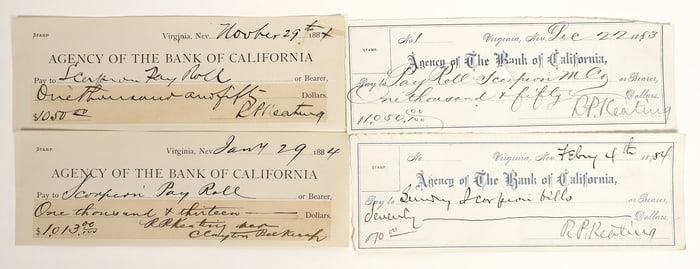 STAMP. Virginia, Nev. Novber 29th 1884
AGENCY OF THE BANK OF CALIFORNIA
Pay to Scorpion Pay Roll or Bearer,
One thousand and fifty Dollars.
$1050.00 R.P. Keating
STAMP. No. 1 Virginia, Nev. Dec 22 1883
Agency of The Bank of California,
Pay to Pay Roll Scorpion M Co or Bearer,
One thousand & fifty Dollars.
$1,050.00/100 R.P. Keating
STAMP. Virginia, Nev. Jany 29 1884
AGENCY OF THE BANK OF CALIFORNIA
Pay to Scorpion Pay Roll or Bearer,
One thousand & thirteen Dollars.
$1,013.00/100 R.P. Keating
Clayton
STAMP. No. Virginia, Nev. Febry 4th 1884
Agency of The Bank of California,
Pay to Sundry Scorpion bills or Bearer,
Seventy Dollars.
70.00 R.P. Keating